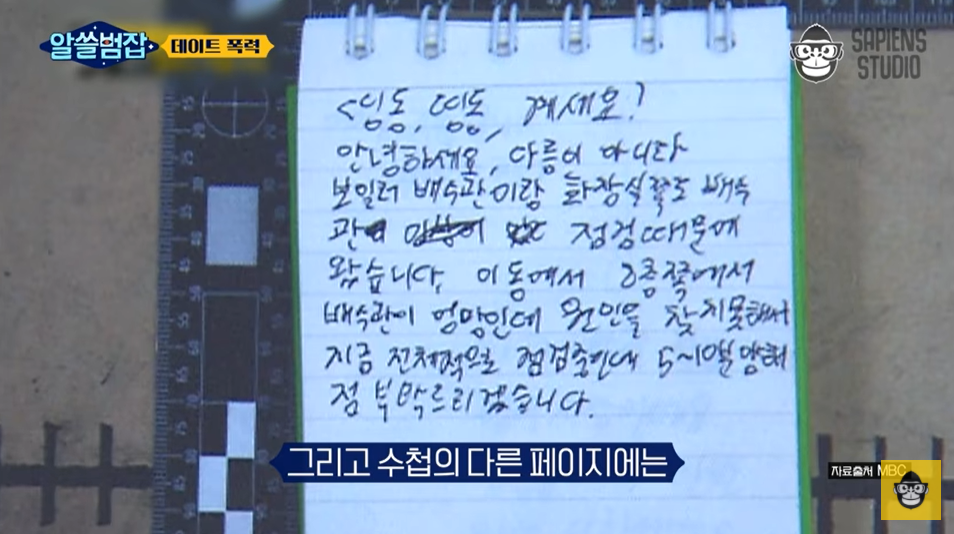 알쓸범잡
데이트 폭력
SAPIENS
STUDIO
<딩동, 띵동, 계세요?
안녕하세요, 다름이 아니라
보일러 배수관이랑 화장실쪽도 배수
관 점검때문에
왔습니다. 이 동에서 2층쪽에서
배수관이 엉망인데 원인을 찾지못해서
지금 전체적으로 점검중인데 5~10분 양해
점 부탁드리겠습니다.
그리고 수첩의 다른 페이지에는
자료출처 MBC